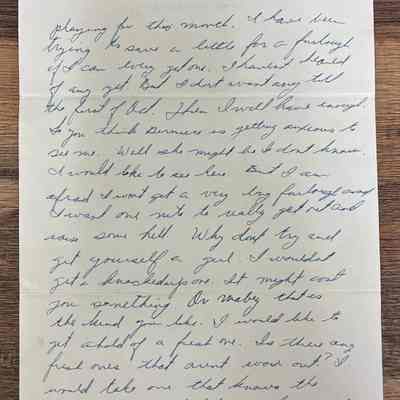 playing for this month. I have been
trying to save a little for a furlough
if I can every get one. I havent heard
of any yet But I dont want any till
the first of Oct. Then I will have enough.
So you think is getting anxious to
see me. Well she might be I dont know.
I would like to see her. But I am
afraid I wont get a very long furlough and
I want one nite to really get out and
raise some hell. Why dont try and
get yourself a girl. I wouldnt
get a knocked up one. It might cost
you something. Or mabey that is
the kind you like. I would like to
get ahold of a fresh one. Is there any
fresh ones that arent wore out? I
would take one that knows the